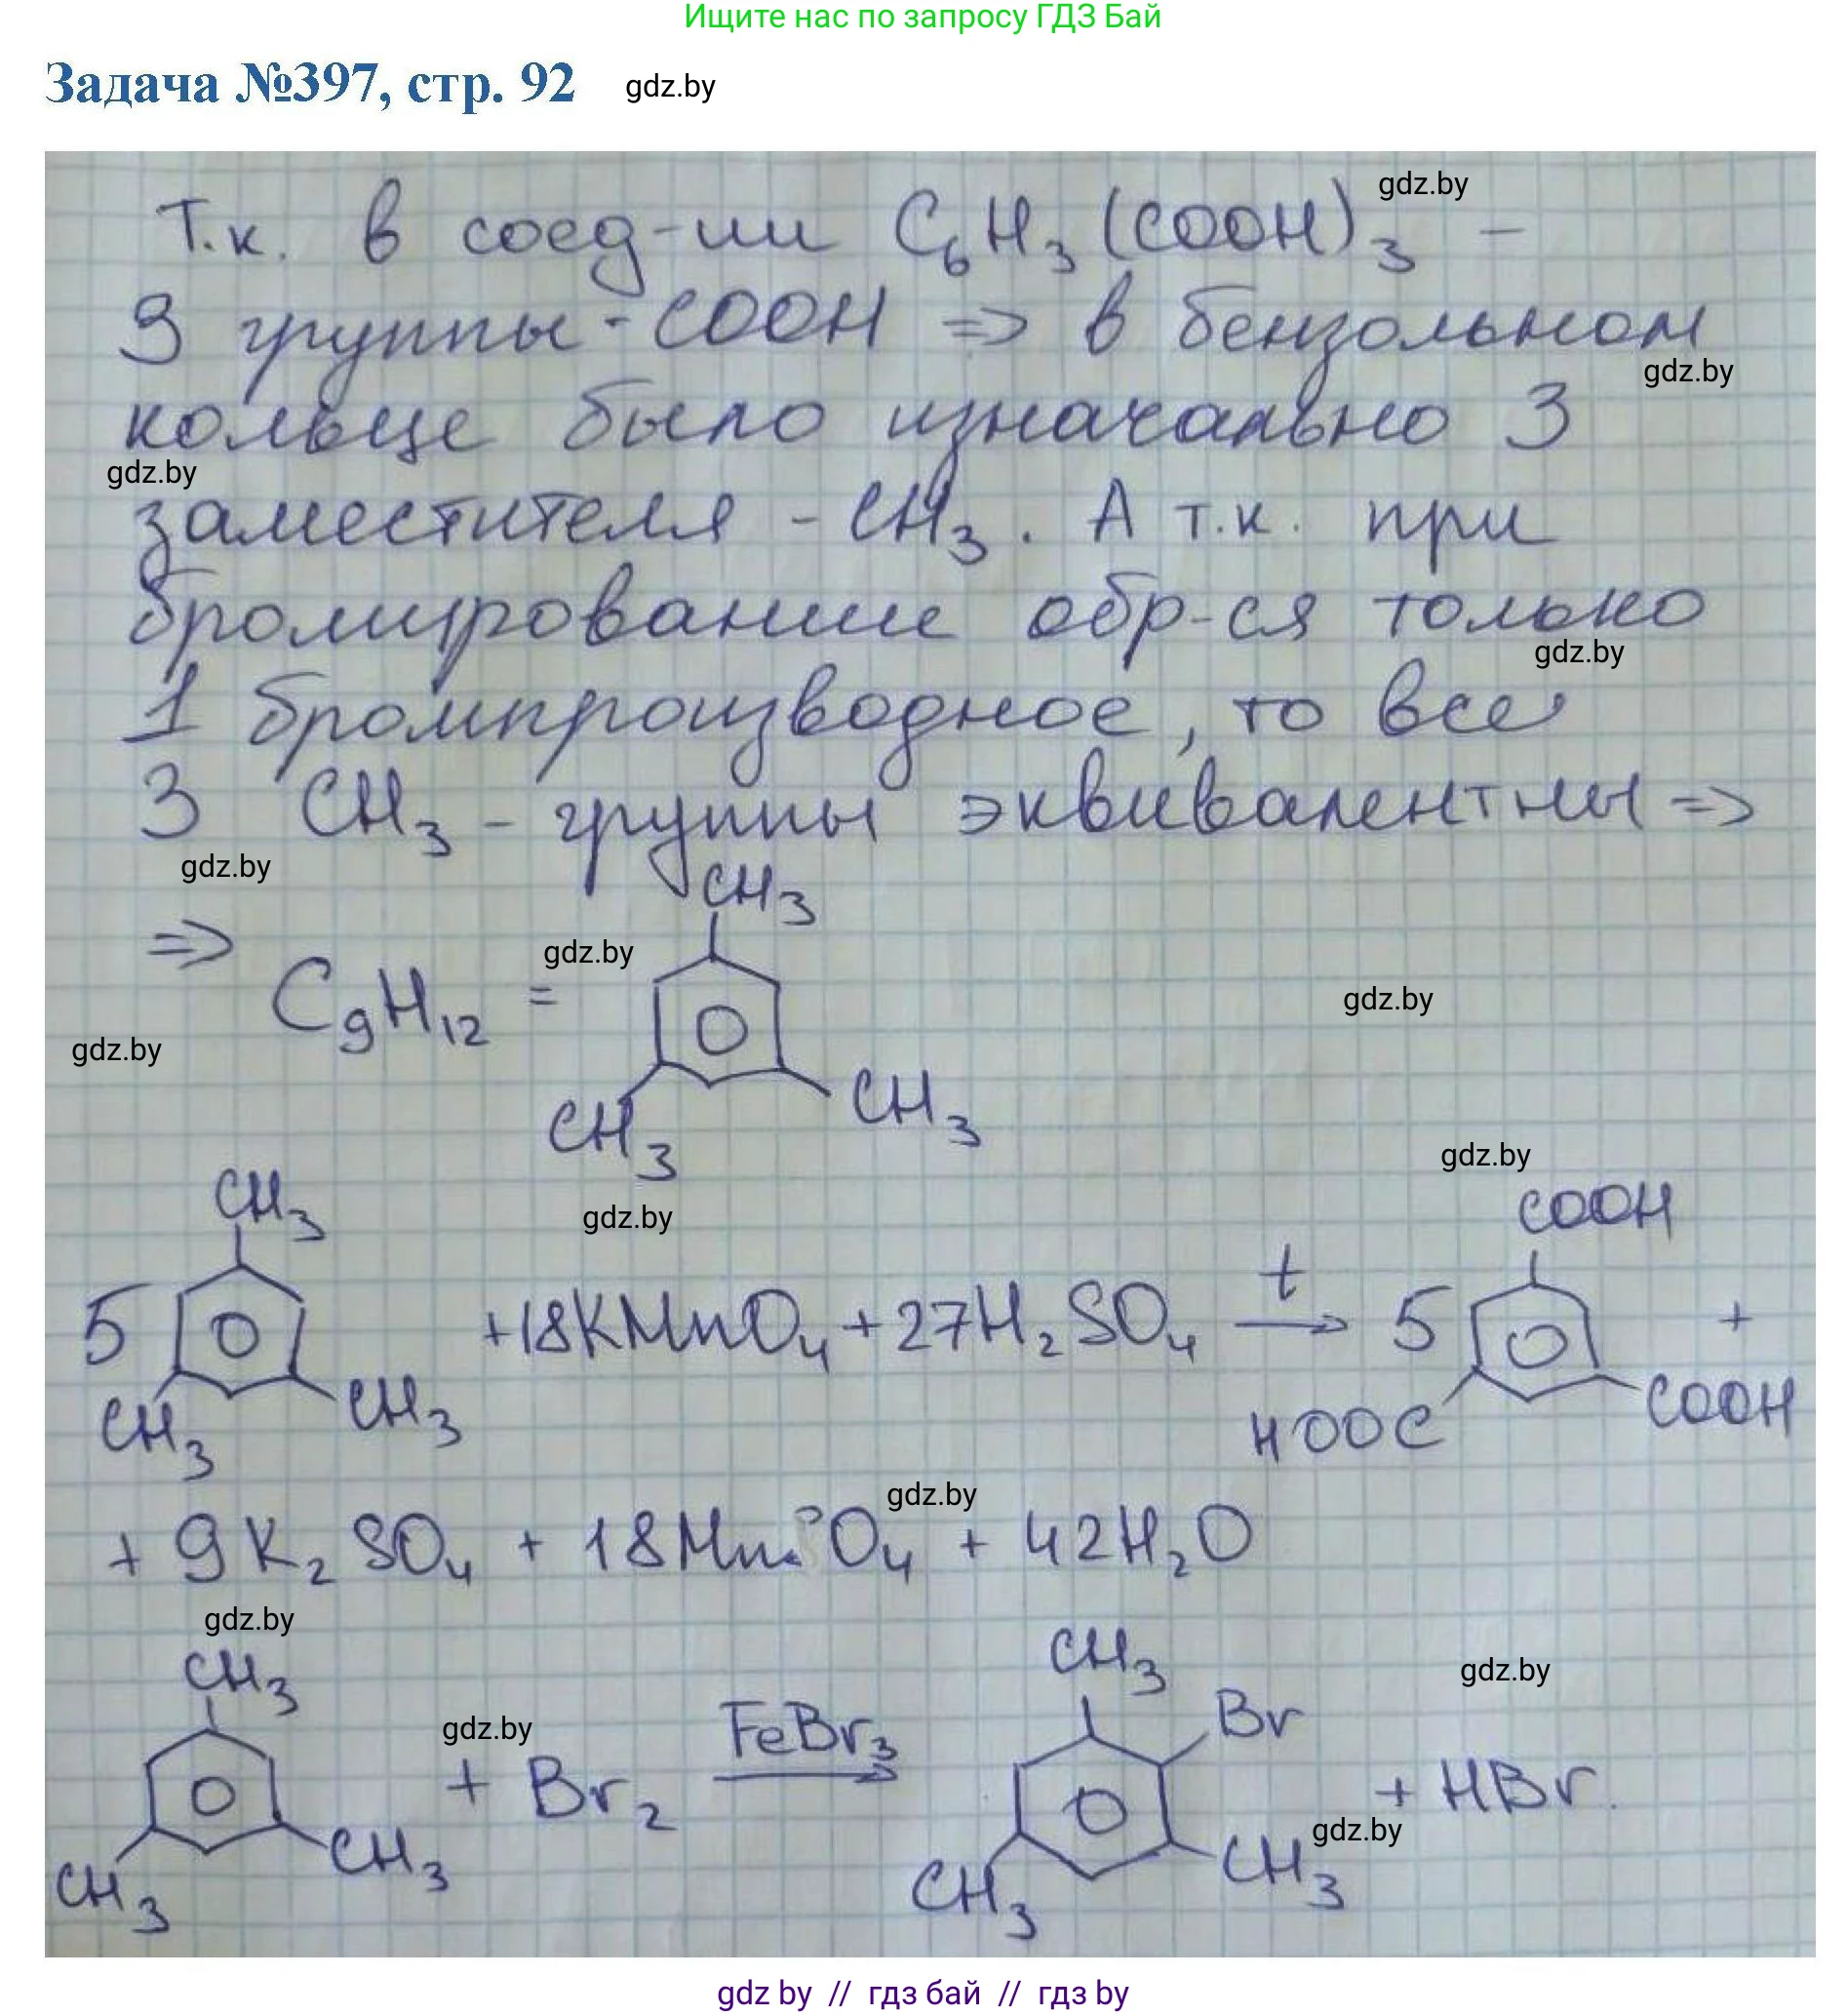 Ищите нас по запросу ГДЗ Бай
Задача №397, стр. 92 gdz.by
gdz.by
Т.к. в соед-ии C₆H₃(COOH)₃ –
3 группы -COOH => в бензольном
gdz.by
кольце было изначально 3
gdz.by
заместителя - CH₃. А т.к. при
бромировании обр-ся только
gdz.by
1 бромпроизводное, то все
3 CH₃ - группы эквивалентны =>
gdz.by
CH₃
=> C₉H₁₂ =
gdz.by
gdz.by
gdz.by
CH₃ CH₃
gdz.by
gdz.by
CH₃ COOH
5 +18KMnO₄ + 27H₂SO₄ t → 5 +
CH₃ CH₃ HOOC COOH
gdz.by
+ 9K₂SO₄ + 18MnSO₄ + 42H₂O
gdz.by
CH₃ CH₃
gdz.by
gdz.by
+ Br₂ FeBr₃ → Br + HBr.
gdz.by
CH₃ CH₃ CH₃ CH₃
gdz by // гдз бай // гдз by